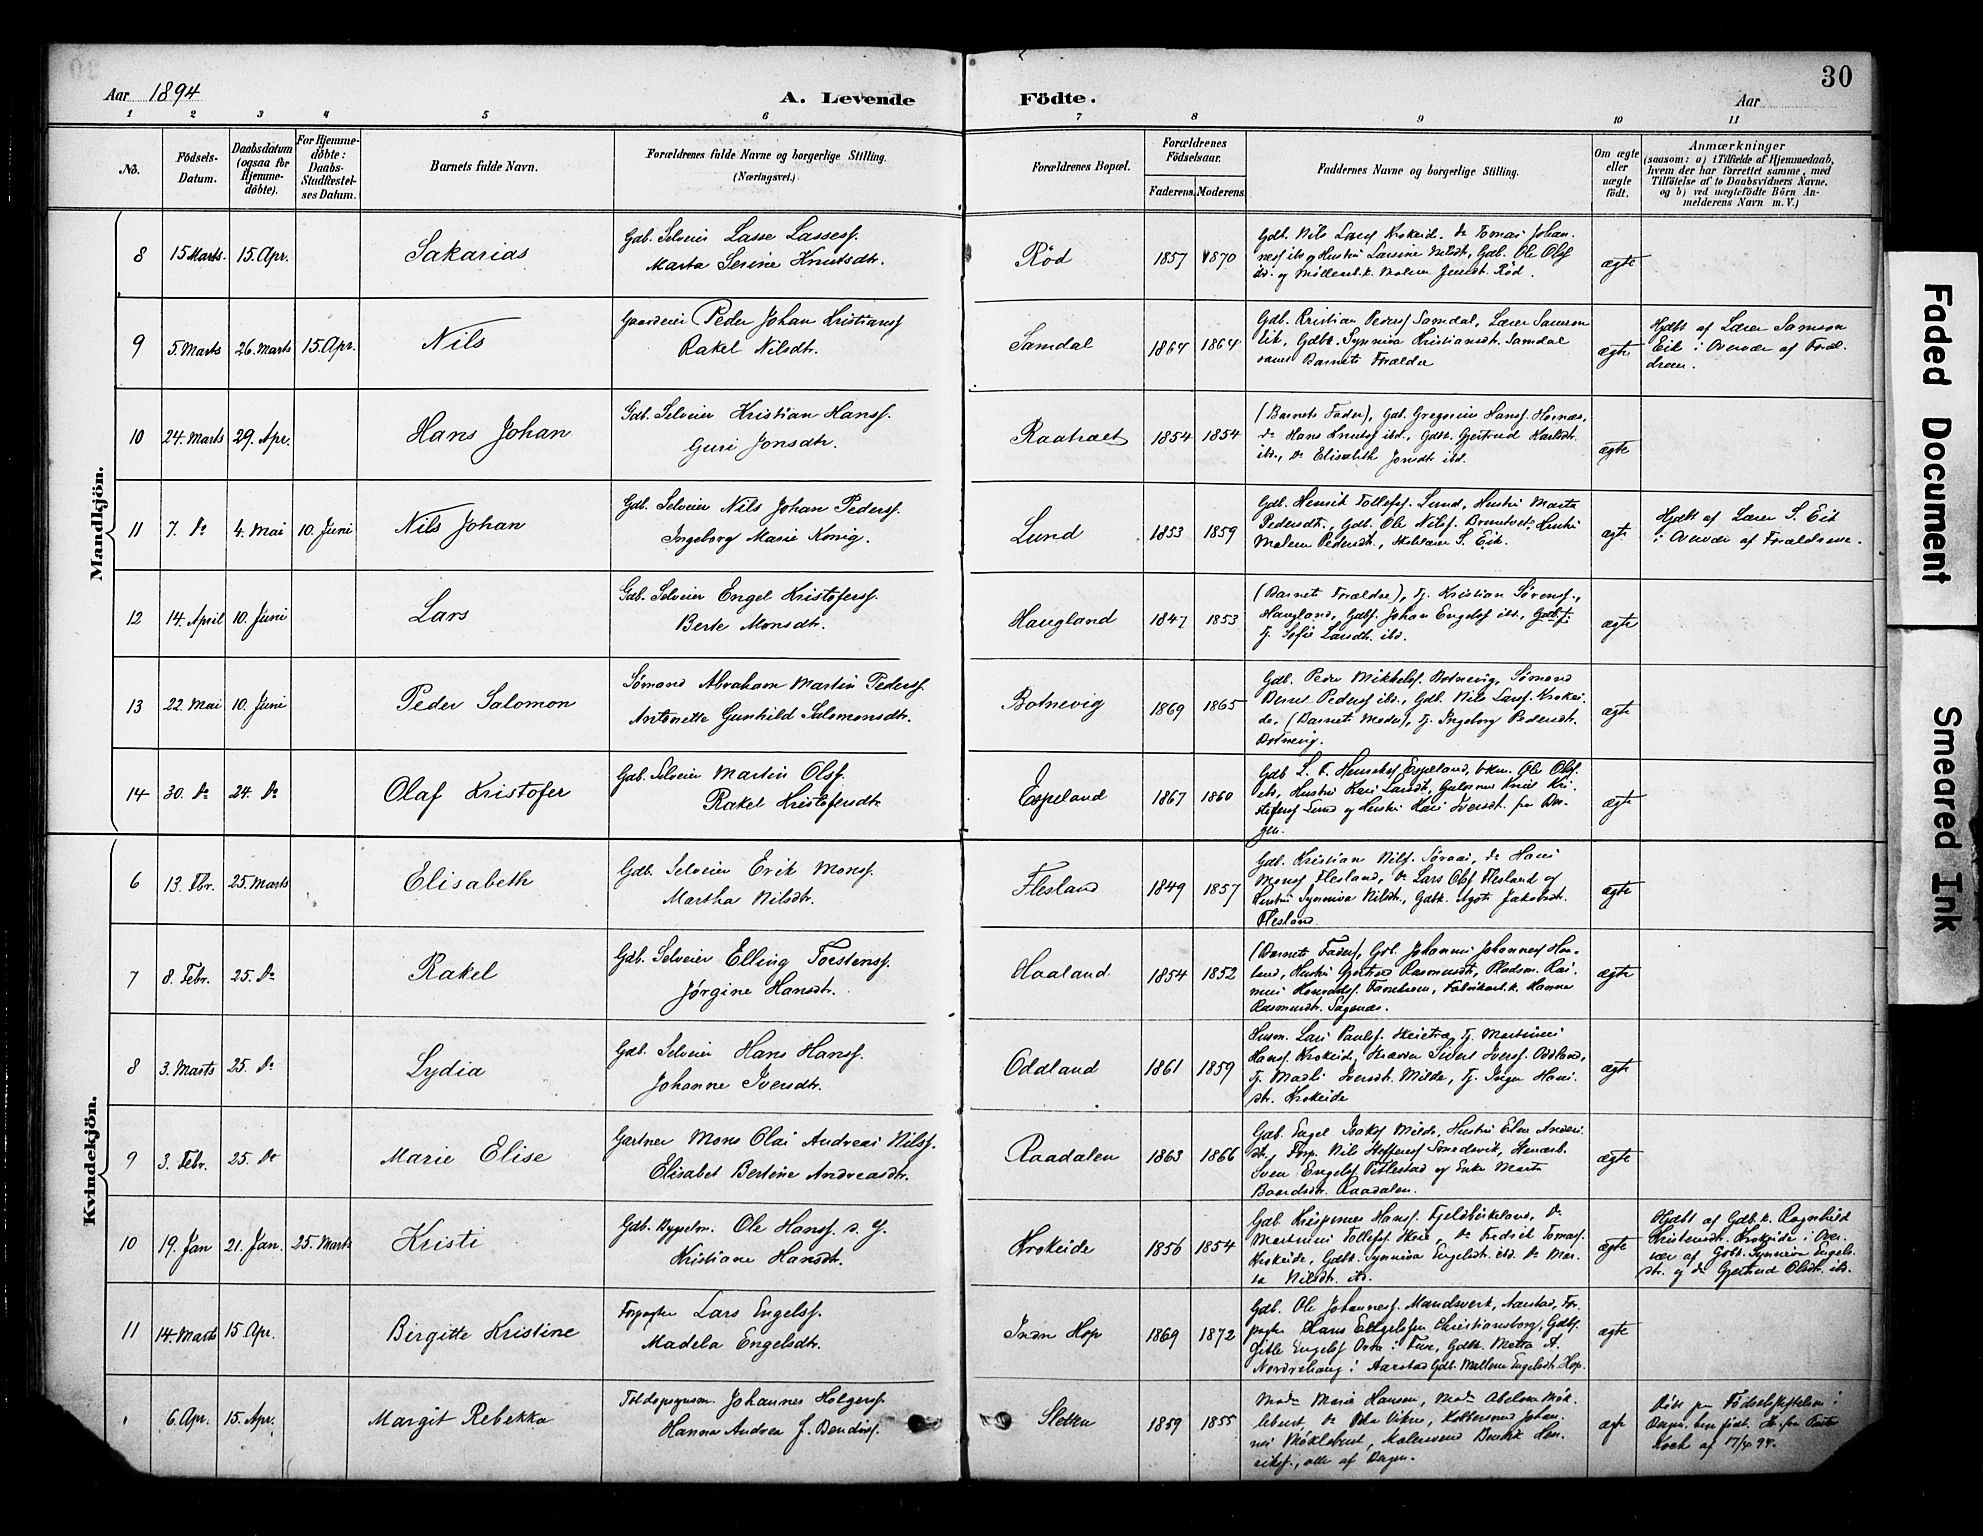 30
Aar 1894
A. Levende Födte.
Aar
1 2 3 4 5 6 7 8 9 10 11
No.
Födsels-Datum.
Daabsdatum (ogsaa for Hjemme-döbte).
For Hjemme-döbte: Daabs-Stadfæstel-ses Datum.
Barnets fulde Navn.
Forældrenes fulde Navne og borgerlige Stilling. (Næringsvei.)
Forældrenes Bopæl.
Forældrenes Födselsaar.
Faderens. Moderens.
Faddernes Navne og borgerlige Stilling.
Om ægte eller uægte födt.
Anmærkninger
(saasom: a) i Tilfælde af Hjemmedaab,
hvem der har forrettet samme, med
Tilföielse af to Daabsvidners Navne,
og b) ved uægtefödte Börn An-
melderens Navn m. V.)
Mandkjön.
8 15 Marts. 15. Apr. Sakarias
Gdb. Selveier Lasse Lassesf.
Marta Serine Knutsdtr.
Röd 1857 1870
Gdb. Nils Larsf Krokeid. do Tomas Johan-
nesf ibd og Hustru Larsine Mildt, Gdb. Ole Olsf
ibd. og Möllerk. Malene Jensdt Röd.
ægte
9 5. Marts 26. Marts 15. Apr. Nils
Gaardeier Peder Johan Kristiansf
Rakel Nilsdtr.
Samdal 1864 1864
Gdb. Kristian Pedersf Samdal, Lærer Samson
Eik, Gdbk. Synneva Kristiansdt. Samdal
samt Barnets Forældre
ægte
Hjdbt af Lærer Samson
Eik i Overvær af Foræl-
drene.
10 24. Marts 29. Apr. Hans Johan
Gdb. Selveier Kristian Hansf.
Guri Jonsdtr.
Raatræet 1854 1854
(Barnets Fader), Gdb. Gregorius Hansf. Hornæs,
do Hans Knutsf ibd., Gdbk. Gjertrud Karlsdt.
ibd., do Elisabeth Jonsdt ibd.
ægte
11 7. Do 4. Mai 10. Juni Nils Johan
Gdb. Selveier Nils Johan Pedersf.
Ingeborg Marie König.
Lund 1853 1859
Gdb. Henrik Tollefsf. Lund, Hustru Marta
Pedersdt., Gdb. Ole Nilsf. Bruntveit, Hustru
Malene Pedersdt., Skolelærer S. Eik.
ægte
Hjdbt af Lærer S. Eik
i Overvær af Forældrene.
12 14. April 10. Juni Lars
Gdb. Selveier Engel Kristofersf.
Berte Monsdtr.
Haugland 1847 1853
(Barnets Forældre), Tj. Kristian Sörensf.,
Haugland, Gdbf. Johan Engelsf ibd.,
Tj. Sofie Larsdt. ibd.
ægte
13 22. Mai 10. Juni Peder Salomon
Sömand Abraham Martin Pedersf.
Antonette Gunhild Salomonsdtr.
Botnevig 1869 1865
Gdb. Peder Mikkelsf. Botnevig, Sömand
Bernt Pedersf ibd., Gdb. Nils Larsf. Krokei-
de, (Barnets Moder), Tj. Ingeborg Pedersdt.
Botnevig.
ægte
14 30. Do 24. Do Olaf Kristofer
Gdb. Selveier Martin Olsf.
Rakel Kristofersdtr
Espeland 1867 1860
Gdb. Espeland, Ole Olsf.
ibd., Hustru Kari Larsdt,
Lund og Hustru Kari Iversdt. fra Ber-
gen.
ægte
Kvindekjön.
6 13. Fbr. 25. Marts Elisabeth
Gdb. Selveier Erik Monsf.
Martha Nilsdtr.
Flesland 1849 1857
Gdb. Kristian Nilsf. Söraas, do Hans
Monsf Flesland, do Lars Olsf Flesland og
Hustru Synneva Nilsdt., Gdbk. Agote Jakobsdt.
Flesland
ægte
7 8. Febr. 25. Do Rakel
Gdb. Selveier Elling Torstensf.
Jörgine Hansdtr.
Haaland 1854 1852
(Barnets Fader), Gdb. Johannes Johannesf Haa-
land, Hustru Gjertrud Rasmusdt, Pladsm. Ras-
mus Fabrikarb.k. Hanna
Rasmusdt. Sagenæs.
ægte
8 3. Marts 25. Do Lydia
Gdb. Selveier Hans Hansf.
Johanne Iversdtr.
Oddland 1861 1859
Husm. Lars Paulsf. Skeistræ, Tj. Martinus
Hansf. Krokeide, Sivert Iversf. Oddland,
Tj. Madli Iversdt. Milde, Tj. Inger Hans-
dtr. Krokeide
ægte
9 3. Febr. 25. Do Marie Elise
Gartner Mons Olai Andreas Nilsf.
Elisabet Bertine Andreasdtr.
Raadalen 1863 1866
Gdb. Engel Isaksf Milde, Hustru Elen Anders-
dt, Forp. Nils Steffensf Smedsvik,
Sven Engelsf Titlestad og Enke Marta
Baardsdtr. Raadalen.
ægte
10 19. Jan 21. Jan. 25. Marts Kristi
Gdb. Bygselm. Ole Hansf. d. Y.
Kristiane Hansdtr.
Krokeide 1856 1854
Gdb. Krispinus Hansf. Fjeldbirkeland, do
Martinus Tollefsf Skeie, do Fredrik Tomasf.
Krokeide, Gdbk. Synneva Engelsdt. ibd. do Mar-
ta Nilsdt. ibd.
ægte
Hjdbt af Gdb.k. Ragnhild
Kristensdt. Krokeide i Over-
vær af Gdbk. Synneva Engels-
dt. og do Gjertrud Olsdtr. ibd.
11 14. Marts 15 Apr. Birgitte Kristine
Forpagter Lars Engelsf.
Madela Engelsdtr.
Indre Hop 1869 1872
Gdb. Ole Johannesf. Mandsverk, Aarstad, For-
pagter Hans Engelsen Christiansborg, Gdbf.
Gitle Engelsf Orta i Fure, Gdbk. Metta A.
Nordrehaug i Aarstad Gdb. Mallene Engelsdt. Hop.
ægte
6. Apr. 15. Apr. Margit Rebekka
Toldopsynsm. Johannes Holgersf.
Hanna Andrea f. Bendixsf.
Sletten 1859 1855
Mad. Marie Hansen, Mad. Abelone Mök-
lebust, do Oda Vikne, Johan-
nes Möklebust, Malersvend Bendik Hen-
riksf., alle af Bergen.
ægte
Födselsstiftelsen i
Bergen, der född.
Koch af 17/4 94.
Faded Document
Smeared Ink